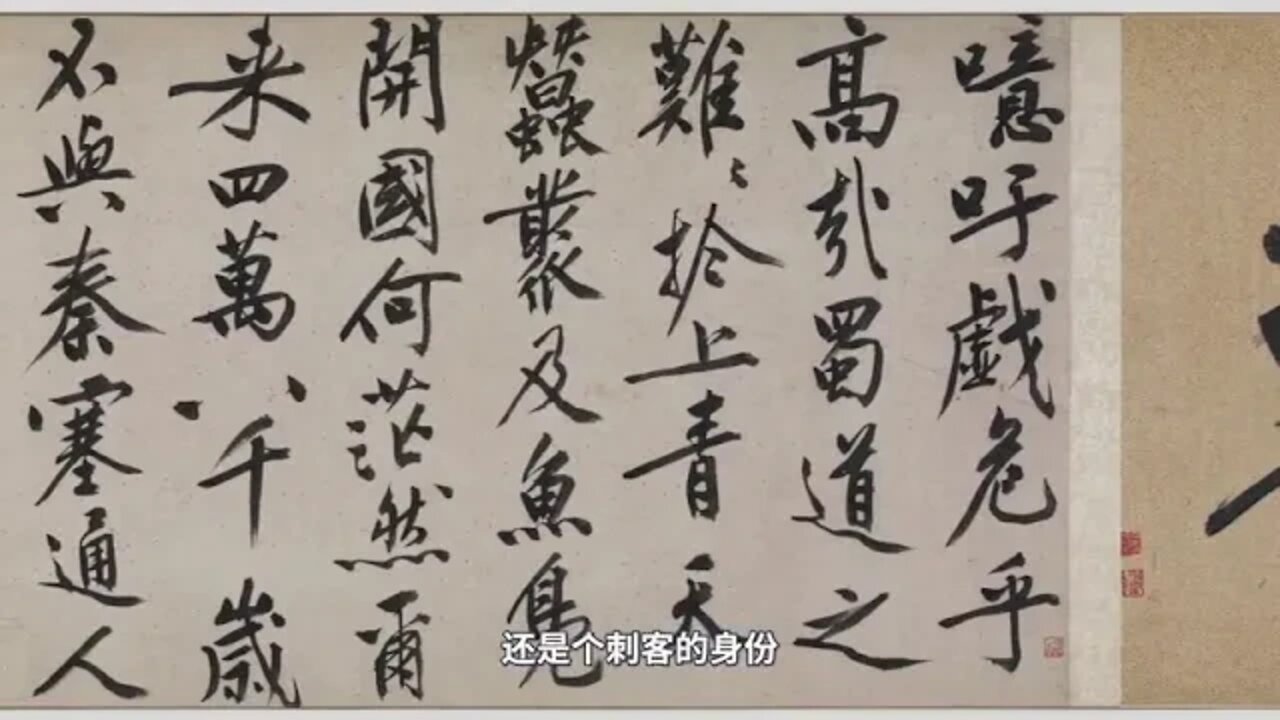 噫吁戲危乎
高哉蜀道之
難〻於上青天
蠶叢及魚鳧
開國何茫然爾
来四萬八千歲
不與秦塞通人
还是个刺客的身份